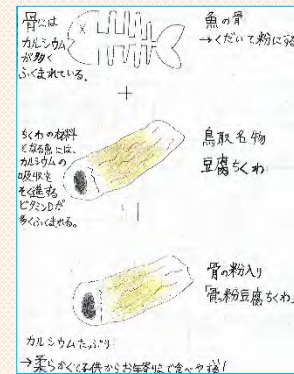 骨には
カルシウム
が多く
ふくまれている。
魚の骨
→くだいて粉にする
+
ちくわの材料
となる魚には、
カルシウムの
吸収を
そく進する
ビタミンDが
多くふくまれる。
鳥取名物
豆腐ちくわ
骨の粉入り
「骨粉豆腐ちくわ」
カルシウムたっぷり
→柔らかくて子供からお年寄りまで食べやすい!